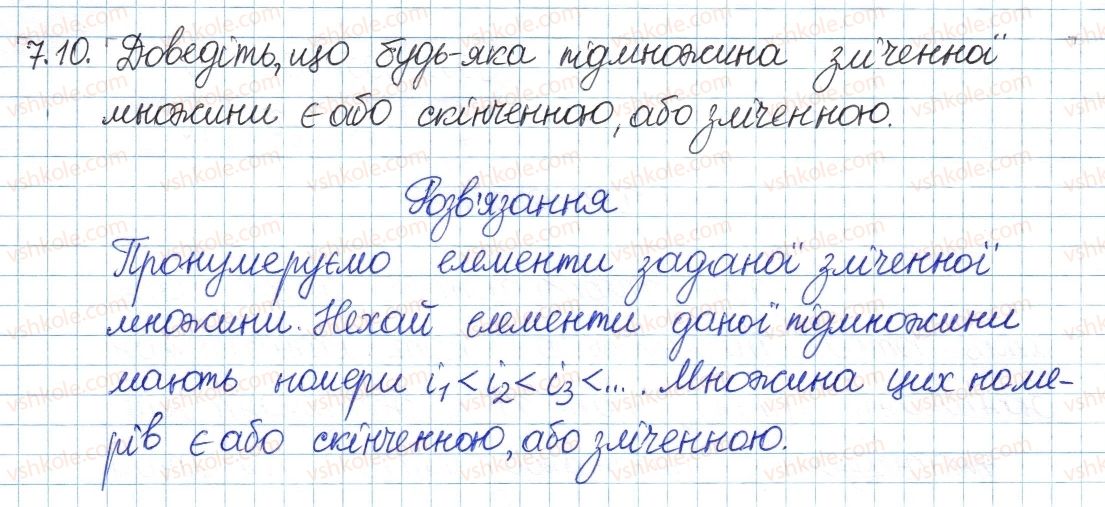 7.10. Доведіть, що будь-яка підмножина зліченної
множини є або скінченною, або зліченною.
Розв'язання
Пронумеруємо елементи заданої зліченної
множини. Нехай елементи даної підмножини
мають номери i₁ < i₂ < i₃ < ... . Множина цих номе-
рів є або скінченною, або зліченною.